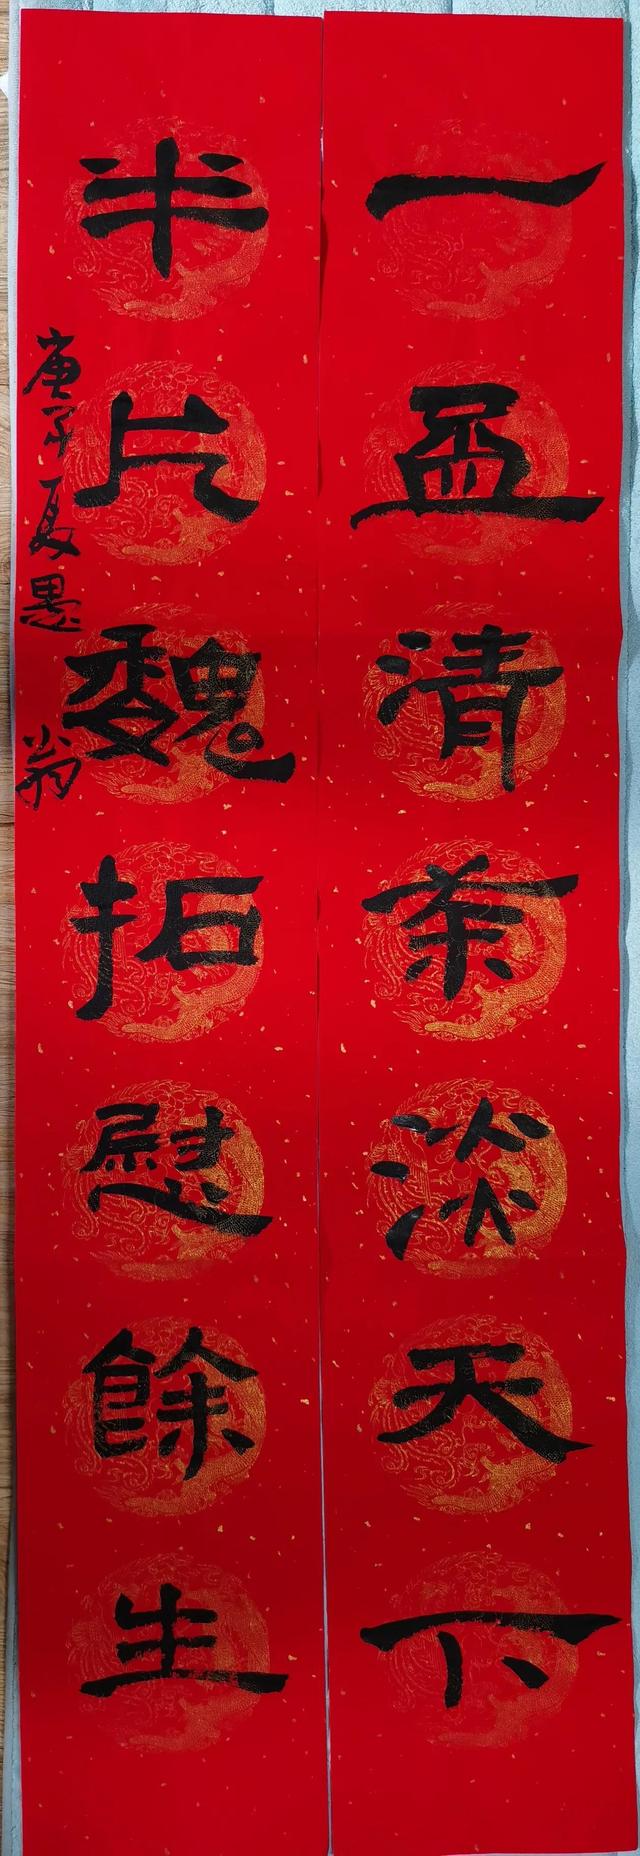 一盃清茶淡天下
半片魏拓慰餘生
庚子夏愚翁